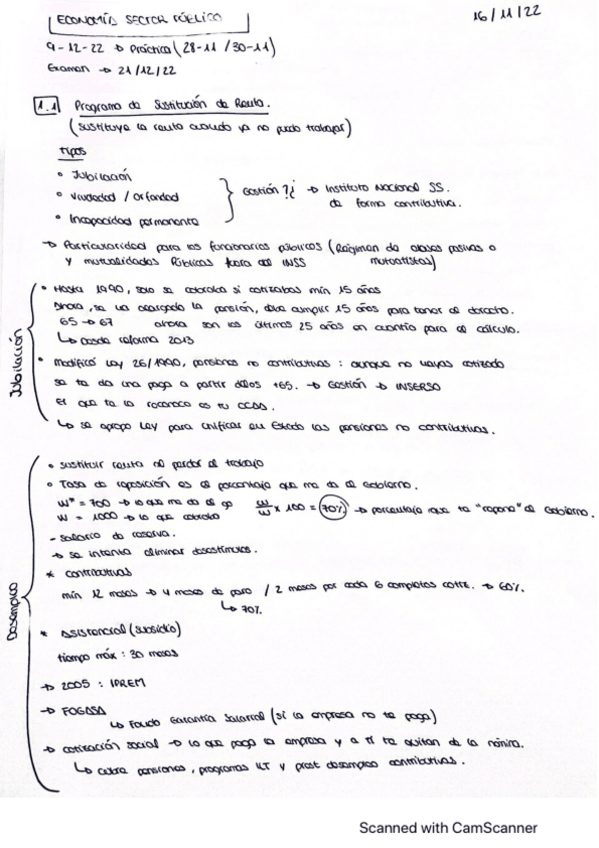 ECONOMÍA SECTOR PÚBLICO
16/11/22
9-12-22 → Práctica (28-11 / 30-11)
Examen → 21/12/22
1.1 Programa de Sustitución de Renta.
(Sustituye la renta cuando ya no puedo trabajar)
TIPOS
• Jubilación
• Viudedad / Orfandad
• Incapacidad permanente
Gestión ?¿ → Instituto Nacional SS.
de forma contributiva.
→ Particularidad para los funcionarios públicos (Régimen de clases pasivas o
y mutualidades Públicas fuera del INSS mutualistas)
Jubilación
• Hasta 1990, solo se cobraba si cotizabas mín 15 años
Ahora, se va alargando la pensión, debe cumplir 15 años para tener el derecho.
65 → 67 ahora son los últimos 25 años en cuantía para el cálculo.
↳ desde reforma 2013
• Modificó Ley 26/1990, pensiones no contributivas: aunque no hayas cotizado
se te da una paga a partir de los +65. → Gestión → INSERSO
El que te lo reconoce es tu CCAA.
↳ se aprobó Ley para unificar en Estado las pensiones no contributivas.
Desempleo
• Sustituir renta al perder el trabajo
• Tasa de reposición es el porcentaje que me da el Gobierno.
W* = 700 → lo que me da el go
W = 1000 → lo que cobraba
W/W x 100 = 70% → porcentaje que te "repone" el Gobierno.
- Salario de reserva.
→ se intenta eliminar desestímulos.
* Contributivas
mín 12 meses → 4 meses de paro / 2 meses por cada 6 completos cotiz. → 60%.
↳ 70%.
* Asistencial (subsidio)
tiempo máx: 30 meses
→ 2005: IPREM
→ FOGASA
↳ Fondo Garantía Salarial (si la empresa no te paga)
→ cotización social → lo que paga la empresa y a ti te quitan de la nómina.
↳ cubre pensiones, programas ILT y prest desempleo contributivas.
Scanned with CamScanner